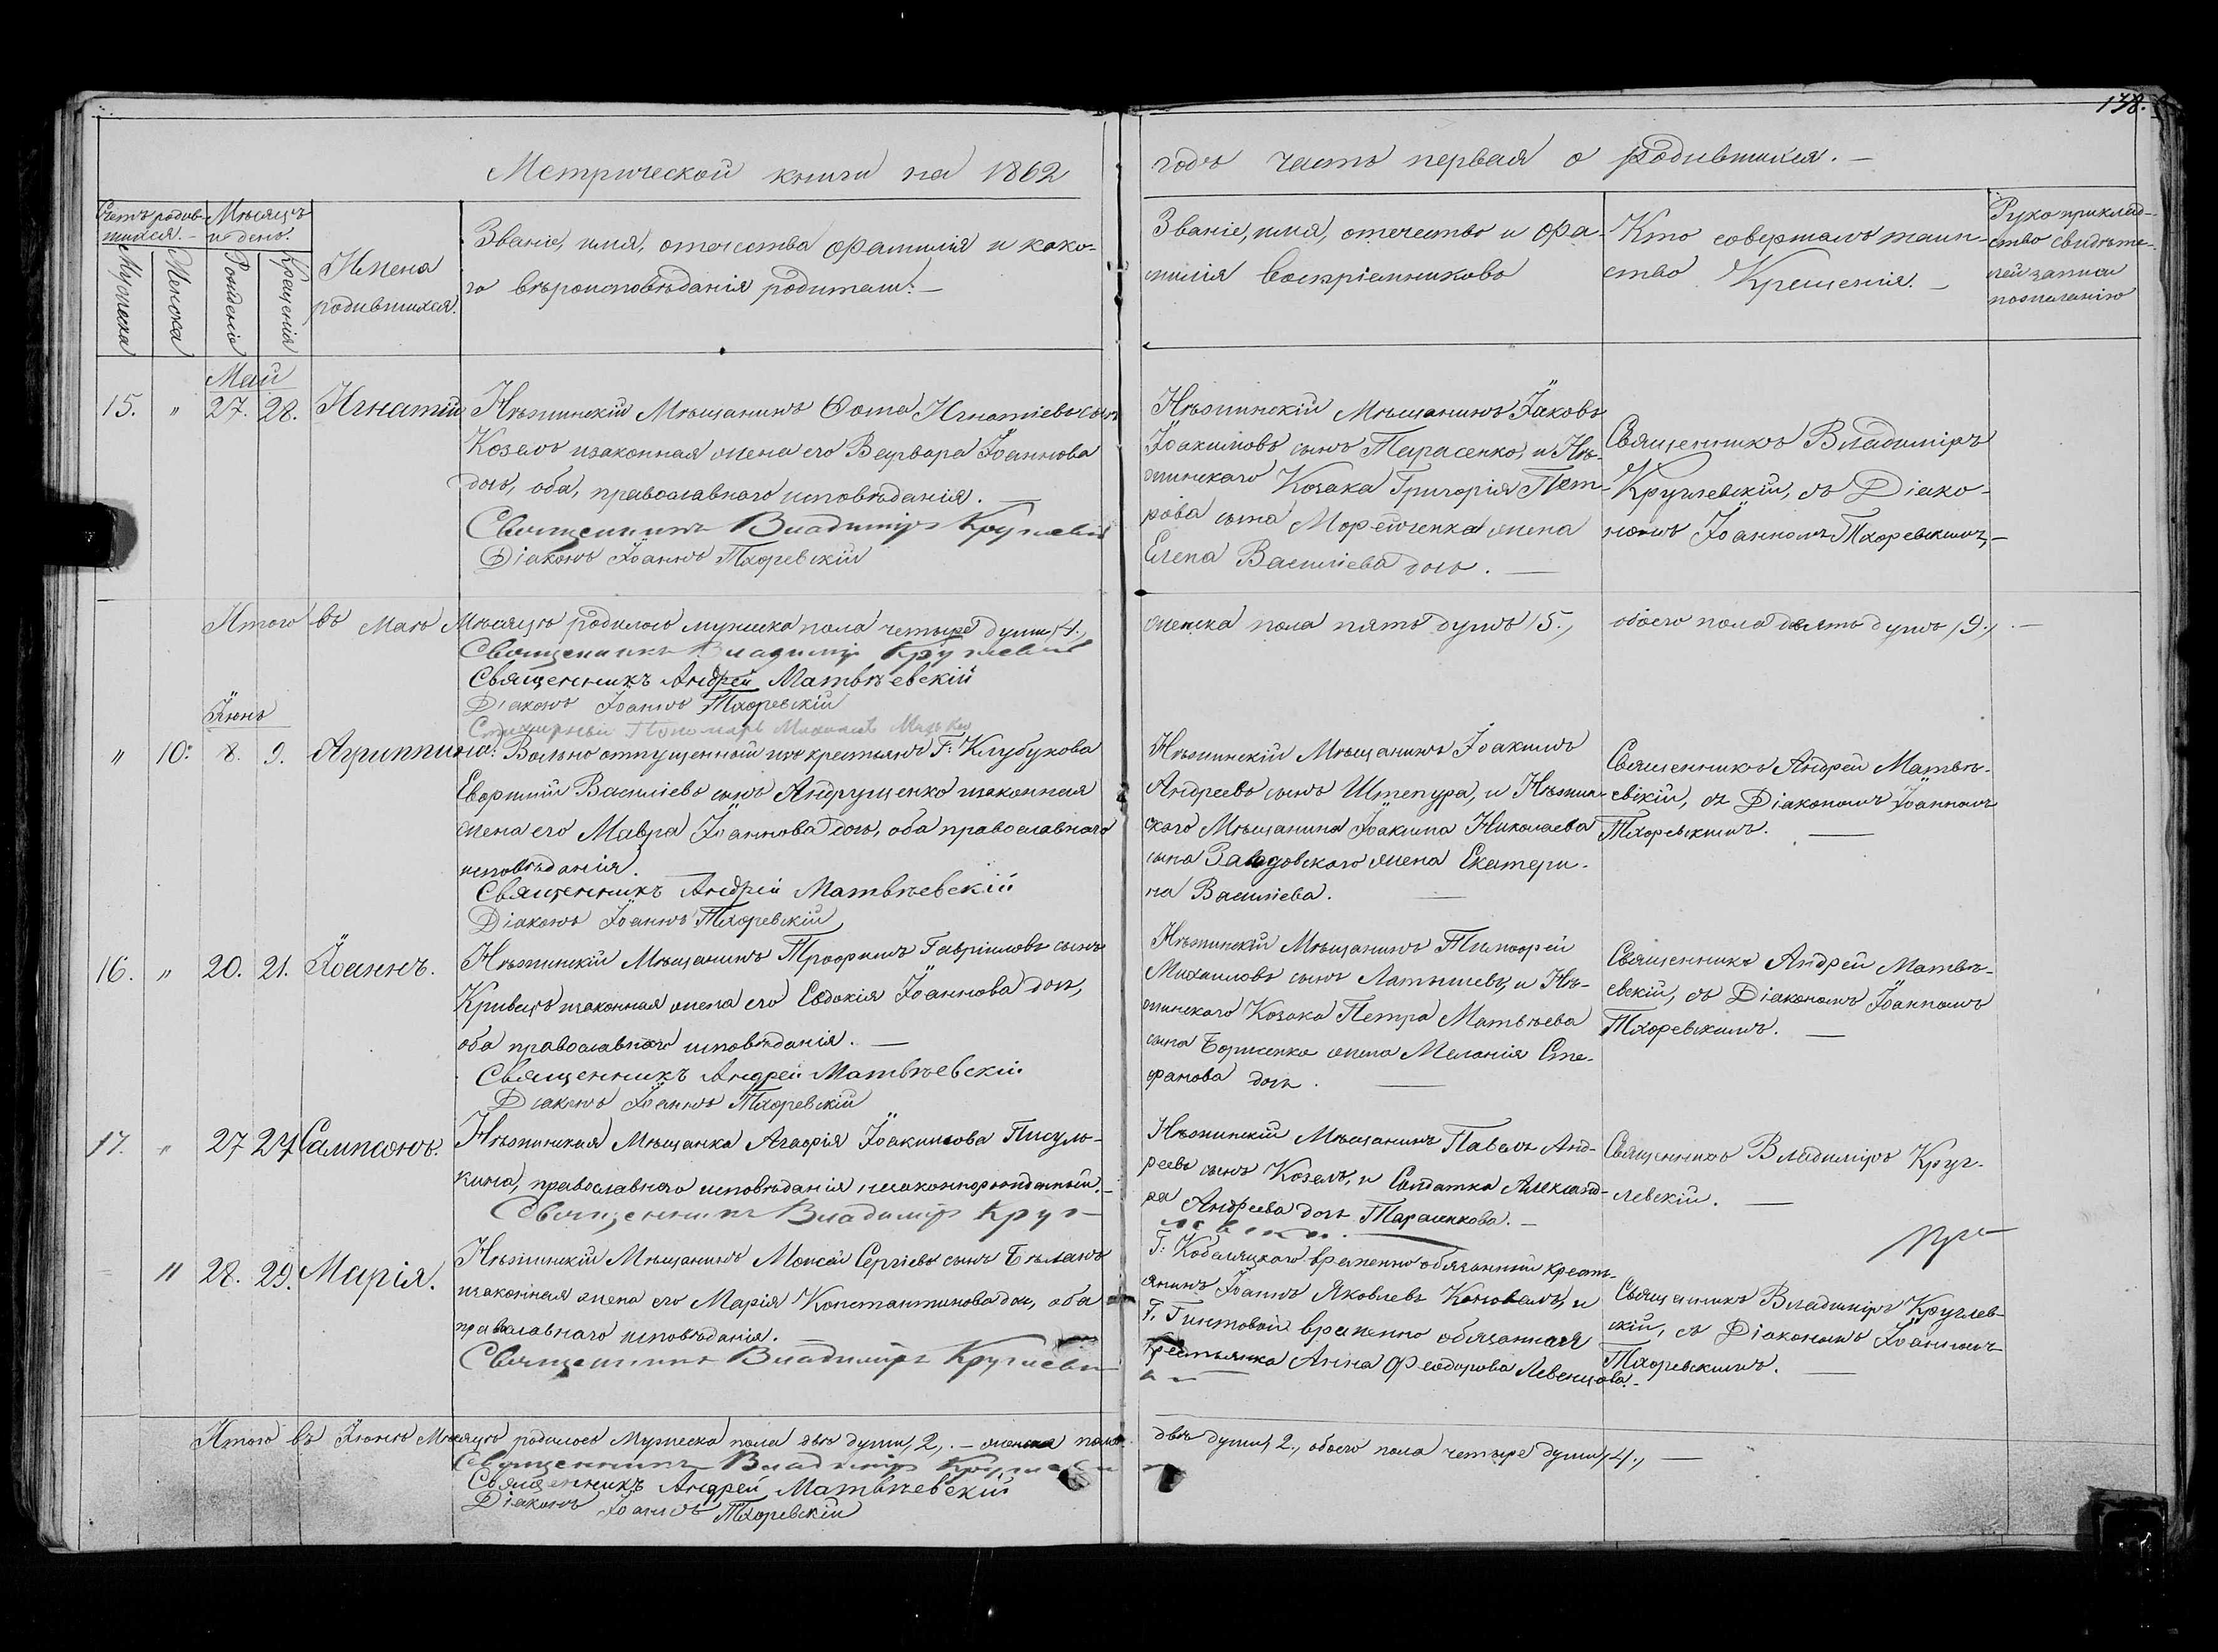 138.
Метрической книги на 1862
годъ часть первая о родившихся. —
Счетъ родив-
шихся. —
Мѣсяцъ
и день.
Мужеска
Женска
Рожденія
Крещенія
Имена
родившихся.
Званіе, имя, отечества фамилія и како-
го вѣроисповѣданія родители: —
Званіе, имя, отечество и фа-
милія воспріемниковъ
Кто совершалъ таин-
ство Крещенія. —
Рукоприклад-
ство свидѣте-
лей записи
по желанію
Май
15. " 27. 28. Игнатій
Нѣжинскій Мѣщанинъ Ѳома Игнатіевъ сынъ
Козелъ изаконная жена его Варвара Іоаннова
дочь, оба, православнаго исповѣданія. —
Священникъ Владиміръ Круглевскій
Діаконъ Іоаннъ Тхоревскій
Нѣжинскій Мѣщанинъ Іаковъ
Іоакимовъ сынъ Тарасенко, и Нѣ-
жинскаго Козака Григорія Пет-
рова сына жена
Елена Василіева дочь. —
Священникъ Владиміръ
Круглевскій, съ Діако-
номъ Іоанномъ Тхоревскимъ, —
Итого въ Маѣ Мѣсяцѣ родилось мужеска пола четыре души, 4.,
женска пола пять душъ, 5.,
обоего пола девять душъ, 9., —
Священникъ Владиміръ Круглевскій
Священникъ Андрей Матвѣевскій
Діаконъ Іоаннъ Тхоревскій
Стихарный Пономарь Михаилъ
Іюнь
" 10. 8. 9. Агриппина.
Вольно отпущенный изъ крестьянъ Г: Клубукова
Евфимій Василіевъ сынъ Андрущенко изаконная
жена его Мавра Іоаннова дочь, оба православнаго
исповѣданія. —
Священникъ Андрей Матвѣевскій
Діаконъ Іоаннъ Тхоревскій
Нѣжинскій Мѣщанинъ Іоакимъ
Андреевъ сынъ Штепура, и Нѣжин-
скаго Мѣщанина Іоакима Николаева
сына Завадовскаго жена Екатери-
на Василіева. —
Священникъ Андрей Матвѣ-
евскій, съ Діакономъ Іоанномъ
Тхоревскимъ. —
16. " 20. 21. Іоаннъ.
Нѣжинскій Мѣщанинъ Трофимъ Гавріиловъ сынъ
Кривецъ изаконная жена его Евдокія Іоаннова дочь,
оба православнаго исповѣданія. —
Священникъ Андрей Матвѣевскій
Діаконъ Іоаннъ Тхоревскій
Нѣжинскій Мѣщанинъ Тимофей
Михаиловъ сынъ Латышевъ, и Нѣ-
жинскаго Козака Петра Матвѣева
сына Борисенка жена Меланія Сте-
фанова дочь. —
Священникъ Андрей Матвѣ-
евскій, съ Діакономъ Іоанномъ
Тхоревскимъ. —
17. " 27 27 Сампсонъ.
Нѣжинская Мѣщанка Агафія Іоакимова Писуль-
кина, православнаго исповѣданія незаконнорожденный. —
Священникъ Владиміръ Круг-
левскій. —
Нѣжинскій Мѣщанинъ Павелъ Анд-
реевъ сынъ Козелъ, и Солдатка Александ-
ра Андреева дочь Тарасенкова. —
Священникъ Владиміръ Круг-
левскій. —
" 28. 29. Марія.
Нѣжинскій Мѣщанинъ Моисей Сергіевъ сынъ Бѣланъ
изаконная жена его Марія Константинова дочь, оба
православнаго исповѣданія. —
Священникъ Владиміръ Круглевскій
Г: Кобеляцкаго временно обязанный крест-
янинъ Іоаннъ Яковлевъ Коновалъ, и
Г. Гинтовой временно обязанная
крестьянка Анна Феодорова Левенцова. —
Священникъ Владиміръ Круглев-
скій, съ Діакономъ Іоанномъ
Тхоревскимъ. —
Итого въ Іюнѣ Мѣсяцѣ родилось Мужеска пола двѣ души, 2., — женска пола
двѣ души, 2., обоего пола четыре души, 4., —
Священникъ Владиміръ Круглевскій
Священникъ Андрей Матвѣевскій
Діаконъ Іоаннъ Тхоревскій